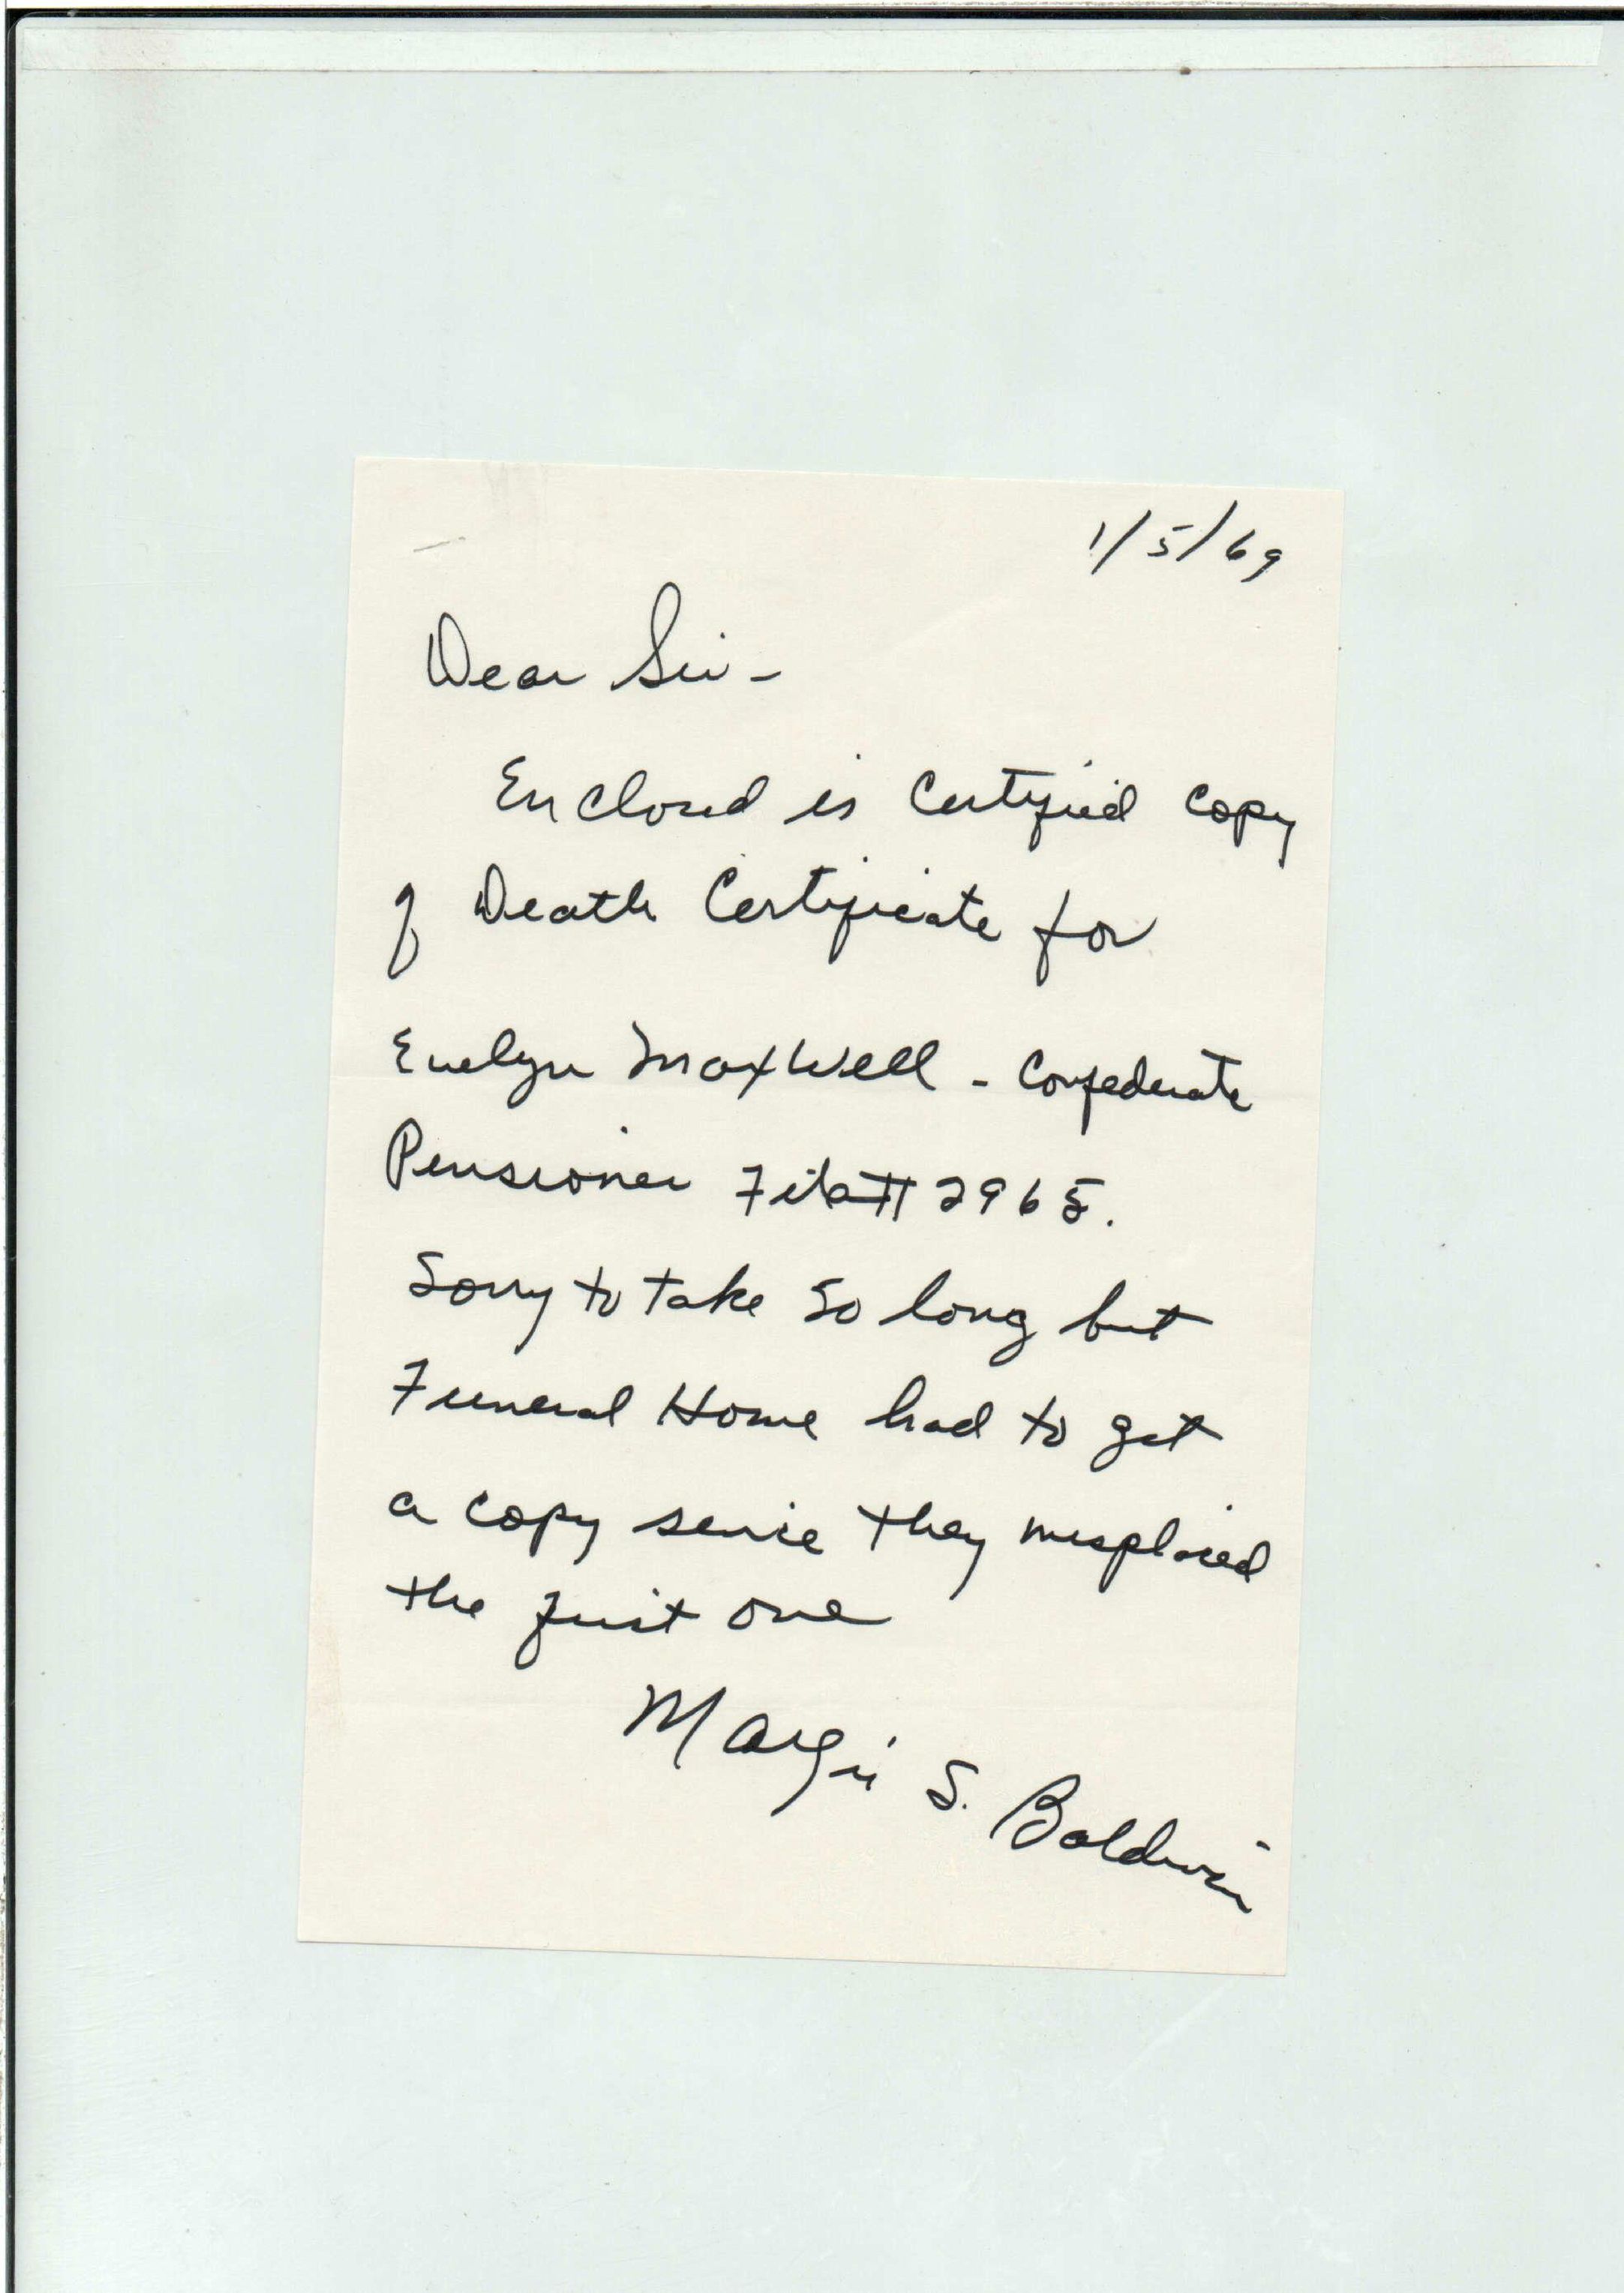 1/5/69
Dear Sir -
Enclosed is Certified Copy
of Death Certificate for
Evelyn Maxwell - Confederate
Pensioner File # 2965.
Sorry to take so long but
Funeral Home had to get
a copy since they misplaced
the first one
Margie S. Baldwin